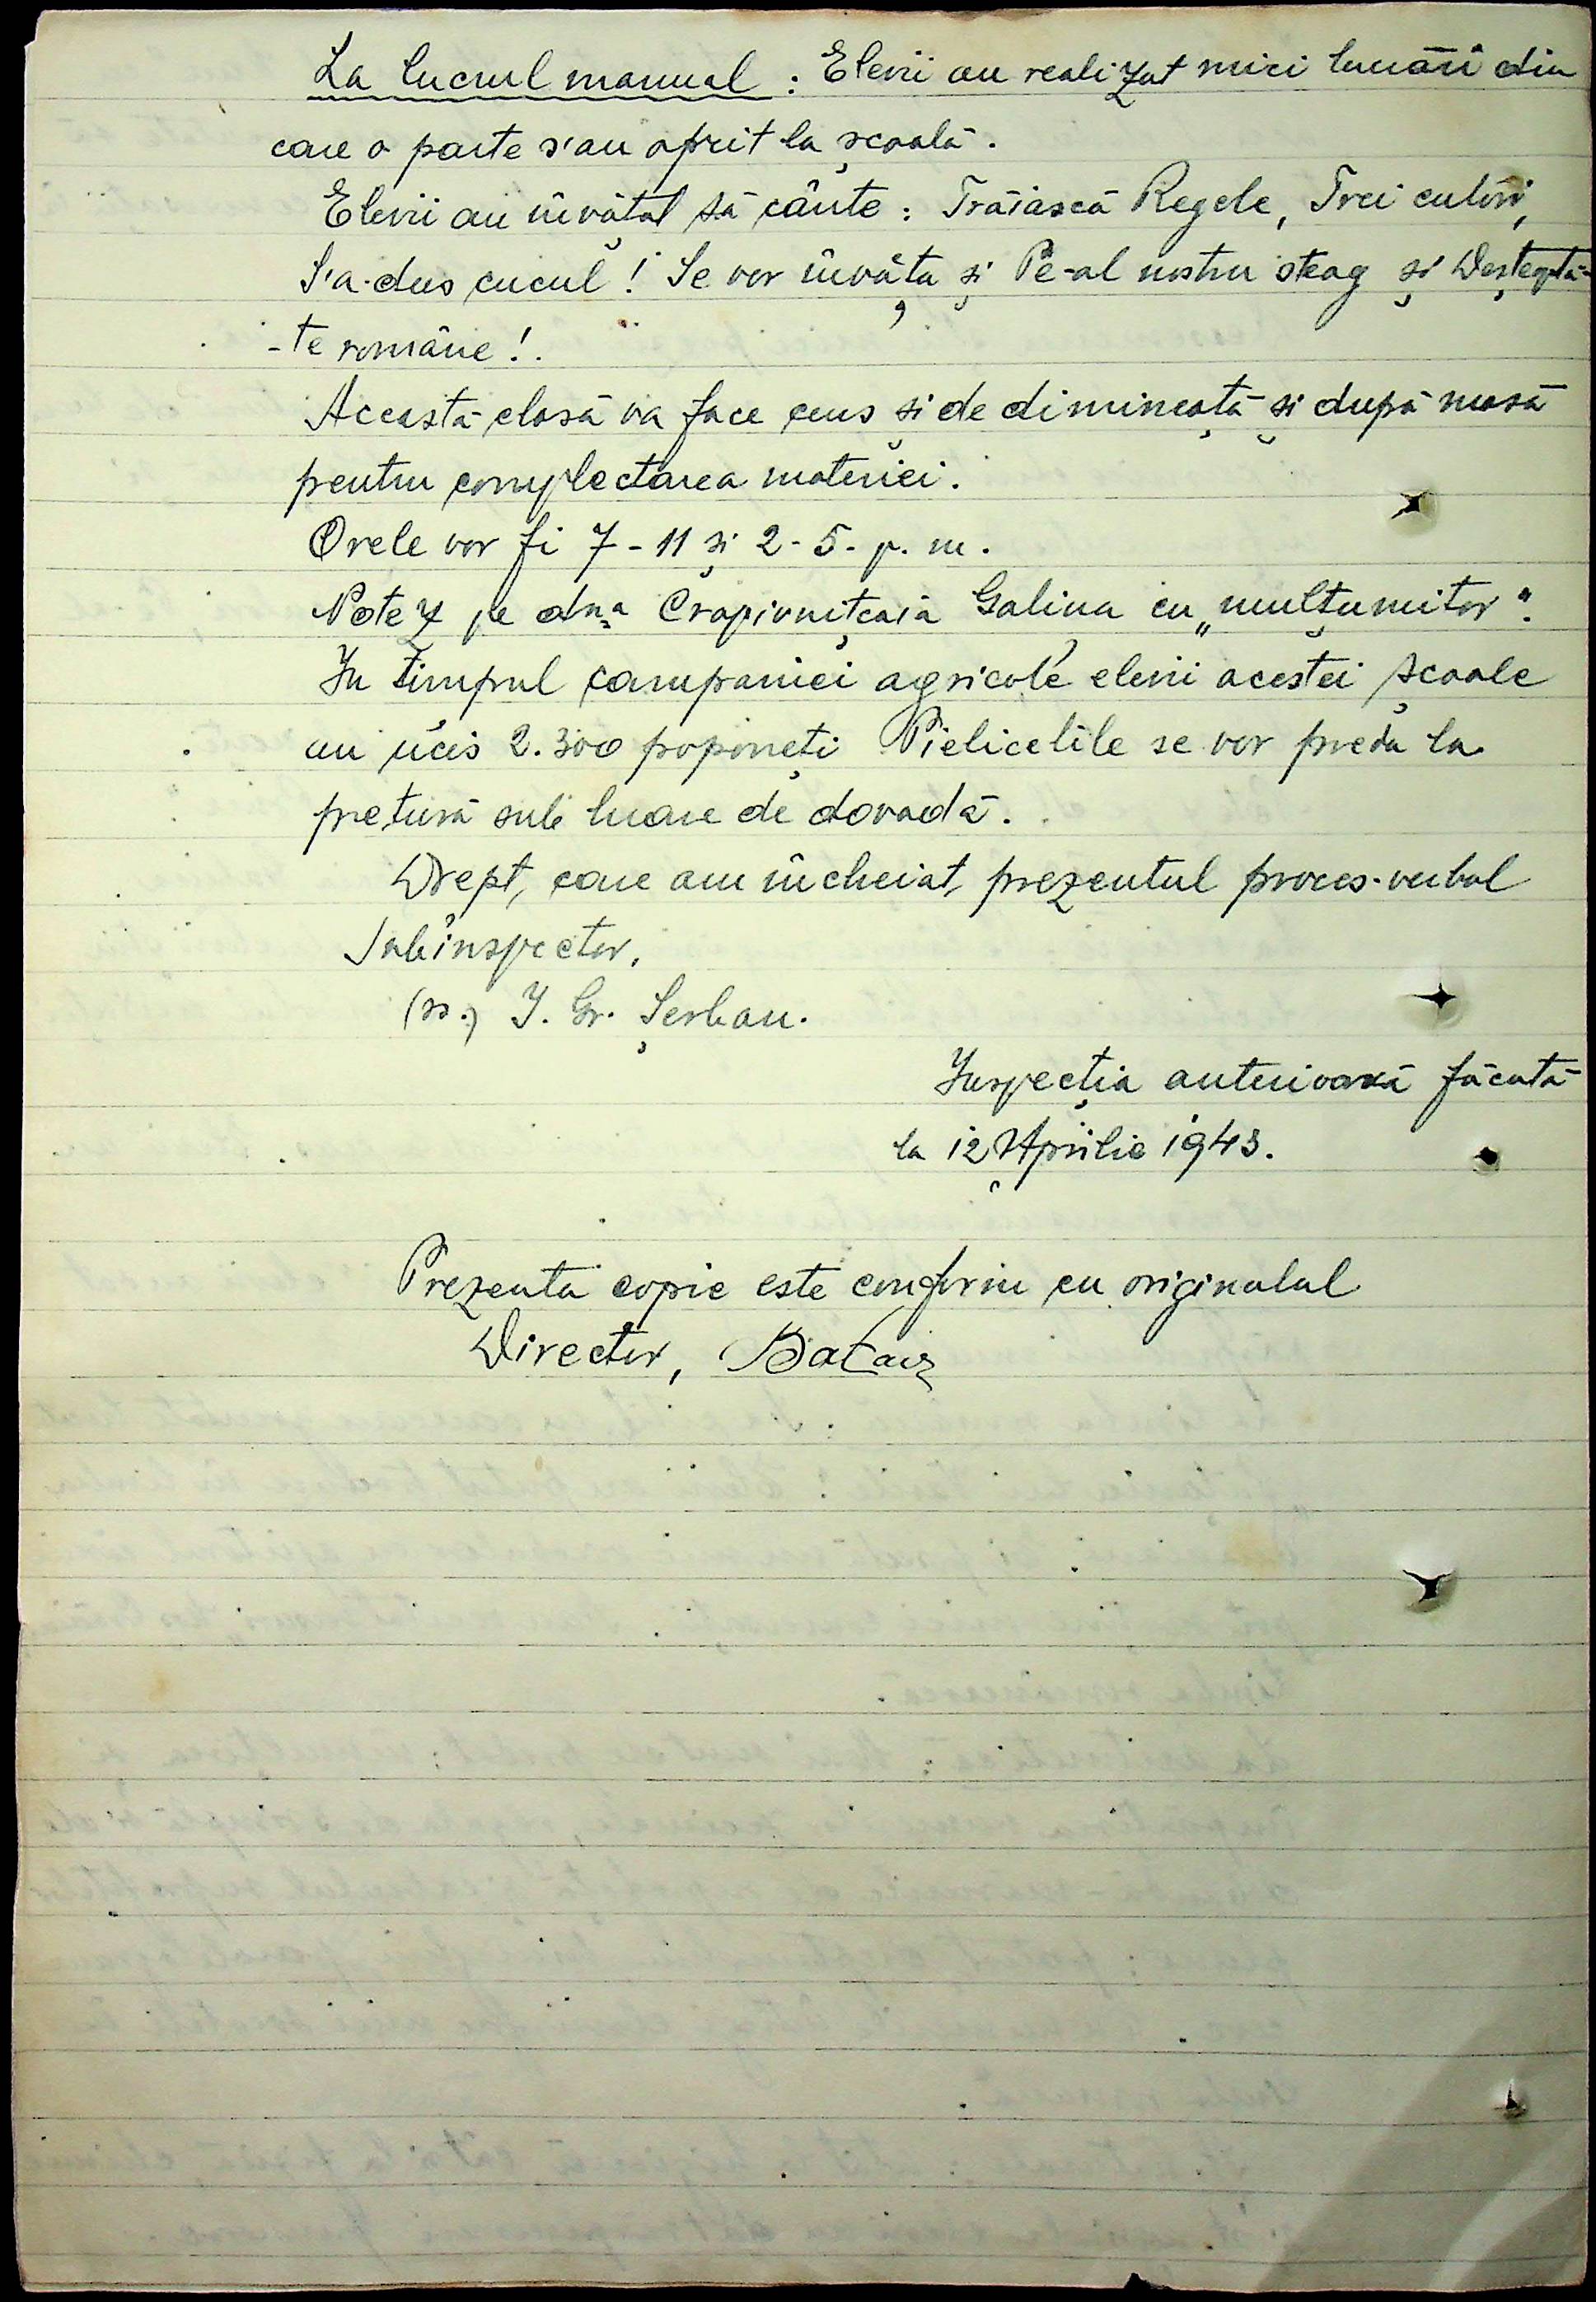 La lucrul manual : Elevii au realizat mici lucrări din
care o parte s'au oprit la școală.
Elevii au învățat să cânte : Trăiască Regele, Trei culori,
S'a-dus cucul ! Se vor învăța și Pe-al nostru steag și Deșteaptă-
-te române !.
Aceastã clasă va face curs și de dimineață și după masă
pentru complectarea materiei.
Orele vor fi 7 - 11 și 2 - 5 - p. m.
Notez pe dna Crapivnițcaia Galina cu „mulțumitor".
In timpul campaniei agricole, elevii acestei școale
au ucis 2.300 popineți Pielicelile se vor preda la
pretură sub luare de dovadă.
Drept, care am încheiat, prezentul proces-verbal
Subinspector,
(ss.) I. Gr. Șerban.
Inspecția anterioară făcută
la 12 Aprilie 1943.
Prezenta copie este conform cu originalul
Director,